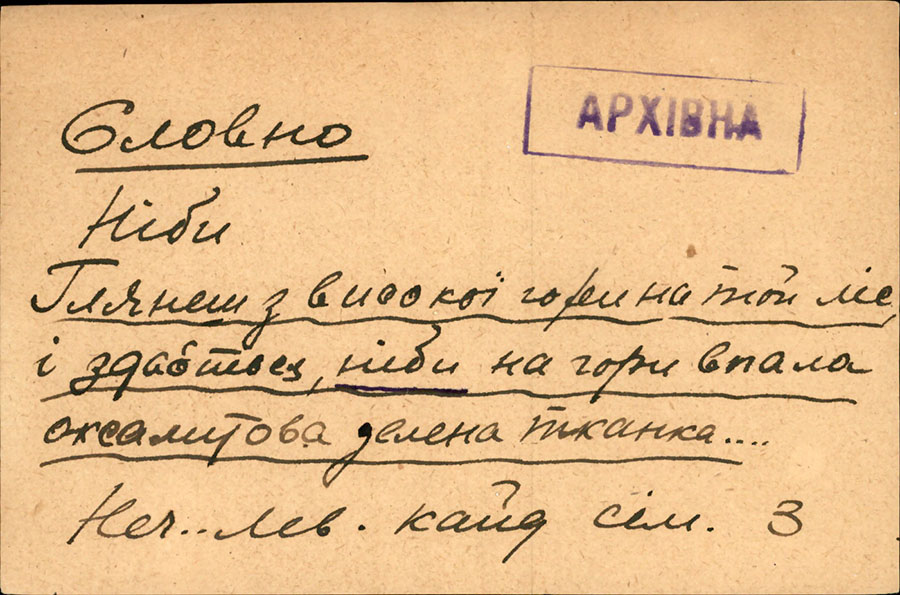 АРХІВНА
Словно
Ніби
Глянеш з високої гори на той ліс,
і здається, ніби на гори впала
оксамитова зелена тканка....
Неч..Лев. Кайд сім. 3